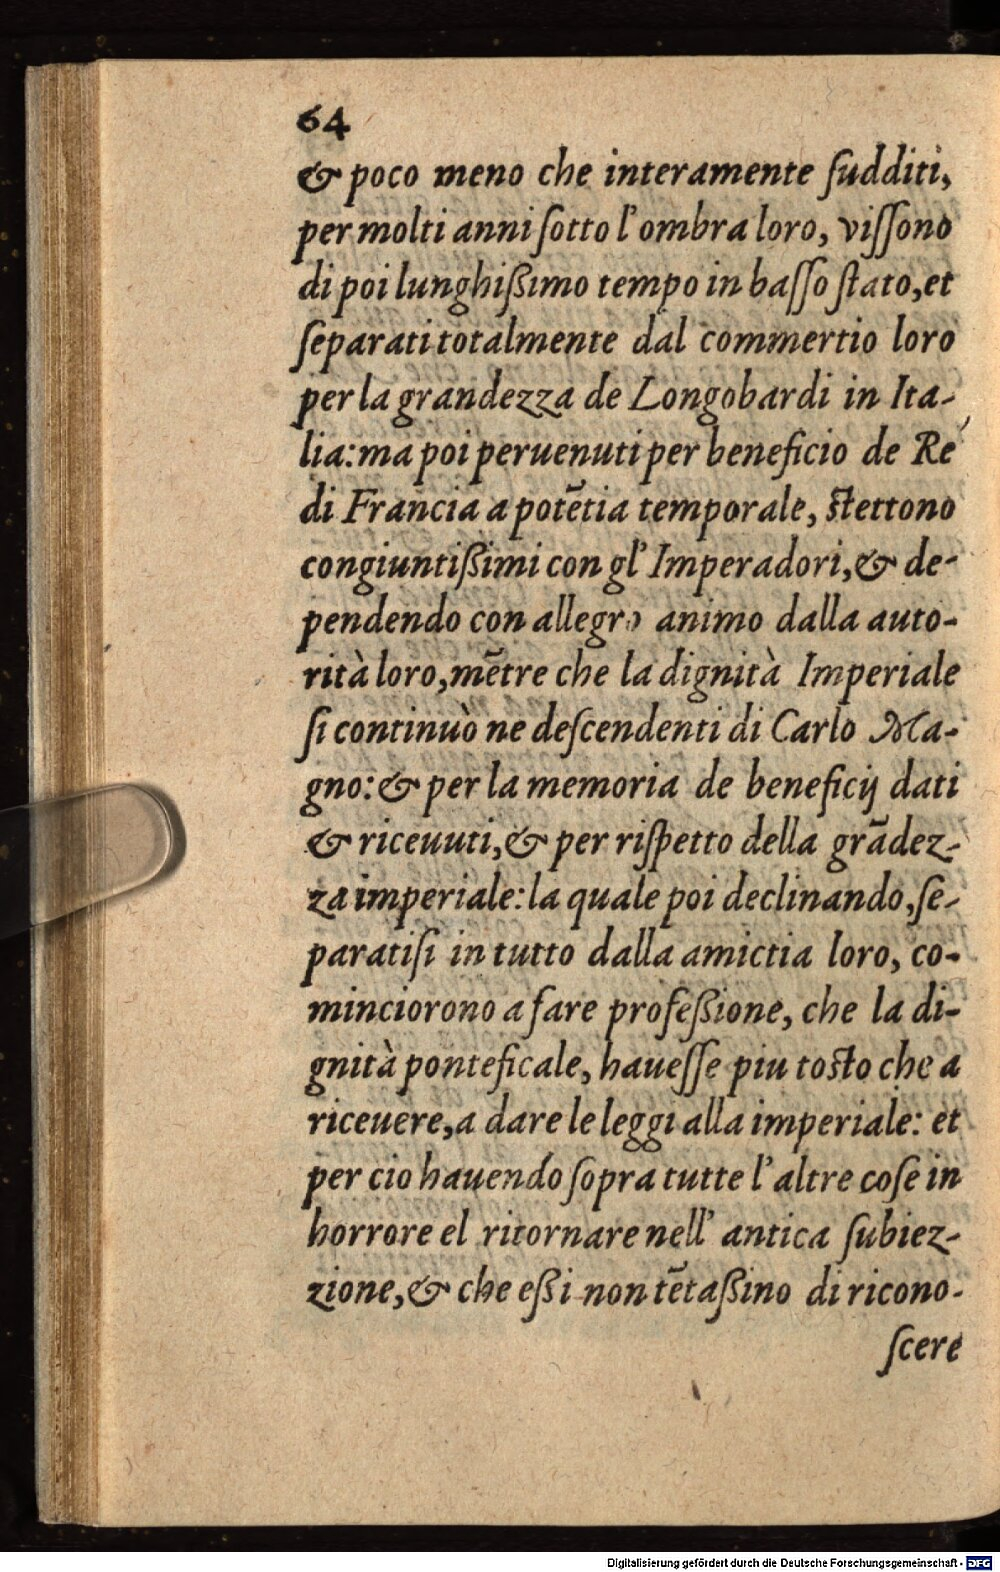 64
& poco meno che interamente ſudditi,
per molti anni ſotto l'ombra loro, viſſono
di poi lunghiſsimo tempo in baſſo ſtato, et
ſeparati totalmente dal commertio loro
per la grandezza de Longobardi in Ita-
lia: ma poi peruenuti per beneficio de Re
di Francia a potẽtia temporale, ſtettono
congiuntiſsimi con gl' Imperadori, & de-
pendendo con allegro animo dalla auto-
rità loro, mẽtre che la dignità Imperiale
ſi continuò ne deſcendenti di Carlo Ma-
gno: & per la memoria de beneficij dati
& riceuuti, & per riſpetto della grãdez-
za imperiale: la quale poi declinando, ſe-
paratiſi in tutto dalla amictia loro, co-
minciorono a fare profeſsione, che la di-
gnità ponteficale, haueſſe piu toſto che a
riceuere, a dare le leggi alla imperiale: et
per cio hauendo ſopra tutte l'altre coſe in
horrore el ritornare nell' antica ſubiez-
zione, & che eſsi non tẽtaſsino di ricono-
ſcere
Digitalisierung gefördert durch die Deutsche Forschungsgemeinschaft - DFG